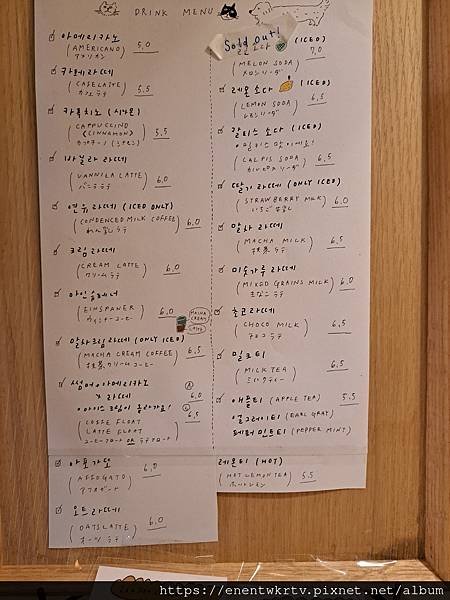 DRINK MENU
아메리카노
(AMERICANO) 5,0
アメリカン
카페라떼
(CAFE LATTE) 5.5
カフェラテ
카푸치노 (시나몬)
(CAPPUCCINO
(CINNAMON) 5.5
바닐라 라떼
(VANNILA LATTE) 6.0
バニララテ
연유 라떼 (ICED ONLY)
(CONDENCED MILK COFFEE) 6.0
크림 라떼
(CREAM LATTE) 6.0
クリームラテ
아인슈페너
(EINSPANER) 6.0
ウィンナーコーヒー
MACHA
CREAM
말차크림라떼 (ONLY ICED)
(MACHA CREAM COFFEE) 6.5
抹茶クリームコーヒー
썸머아메리카노
x 라떼 6.0
아이스크림이 올라가요! 6.5
(COFFE FLOAT
LATTE FLOAT
コーヒーフロート OR ラテフロート)
아포가토
(AFFOGATO) 6.0
アフォガード
오트라떼
(OATS LATTE) 6.0
オーツラテ
Sold out!
(ICED)
7,0
(MELON SODA)
メロンソーダ
레몬 소다 (ICED)
(LEMON SODA) 6.5
レモンソーダ
칼피스 소다 (ICED)
(CALPIS SODA) 6.5
カルピスソーダ
딸기 라떼 (ONLY ICED)
(STRAWBERRY MILK) 6.0
말차 라떼
(MACHA MILK) 6.5
抹茶ラテ
미숫가루 라떼
(MIXED GRAINS MILK) 6.0
きなこラテ
초코라떼
(CHOCO MILK) 6.5
チョコラテ
밀크티
(MILK TEA) 6.5
ミルクティー
애플티 (APPLE TEA) 5.5
얼그레이티 (EARL GRAY)
페퍼민트티 (PEPPER MINT)
레몬티 (HOT)
(HOT LEMON TEA) 5.5
ホットレモン
https://enentwkrtv.pixnet.net/album